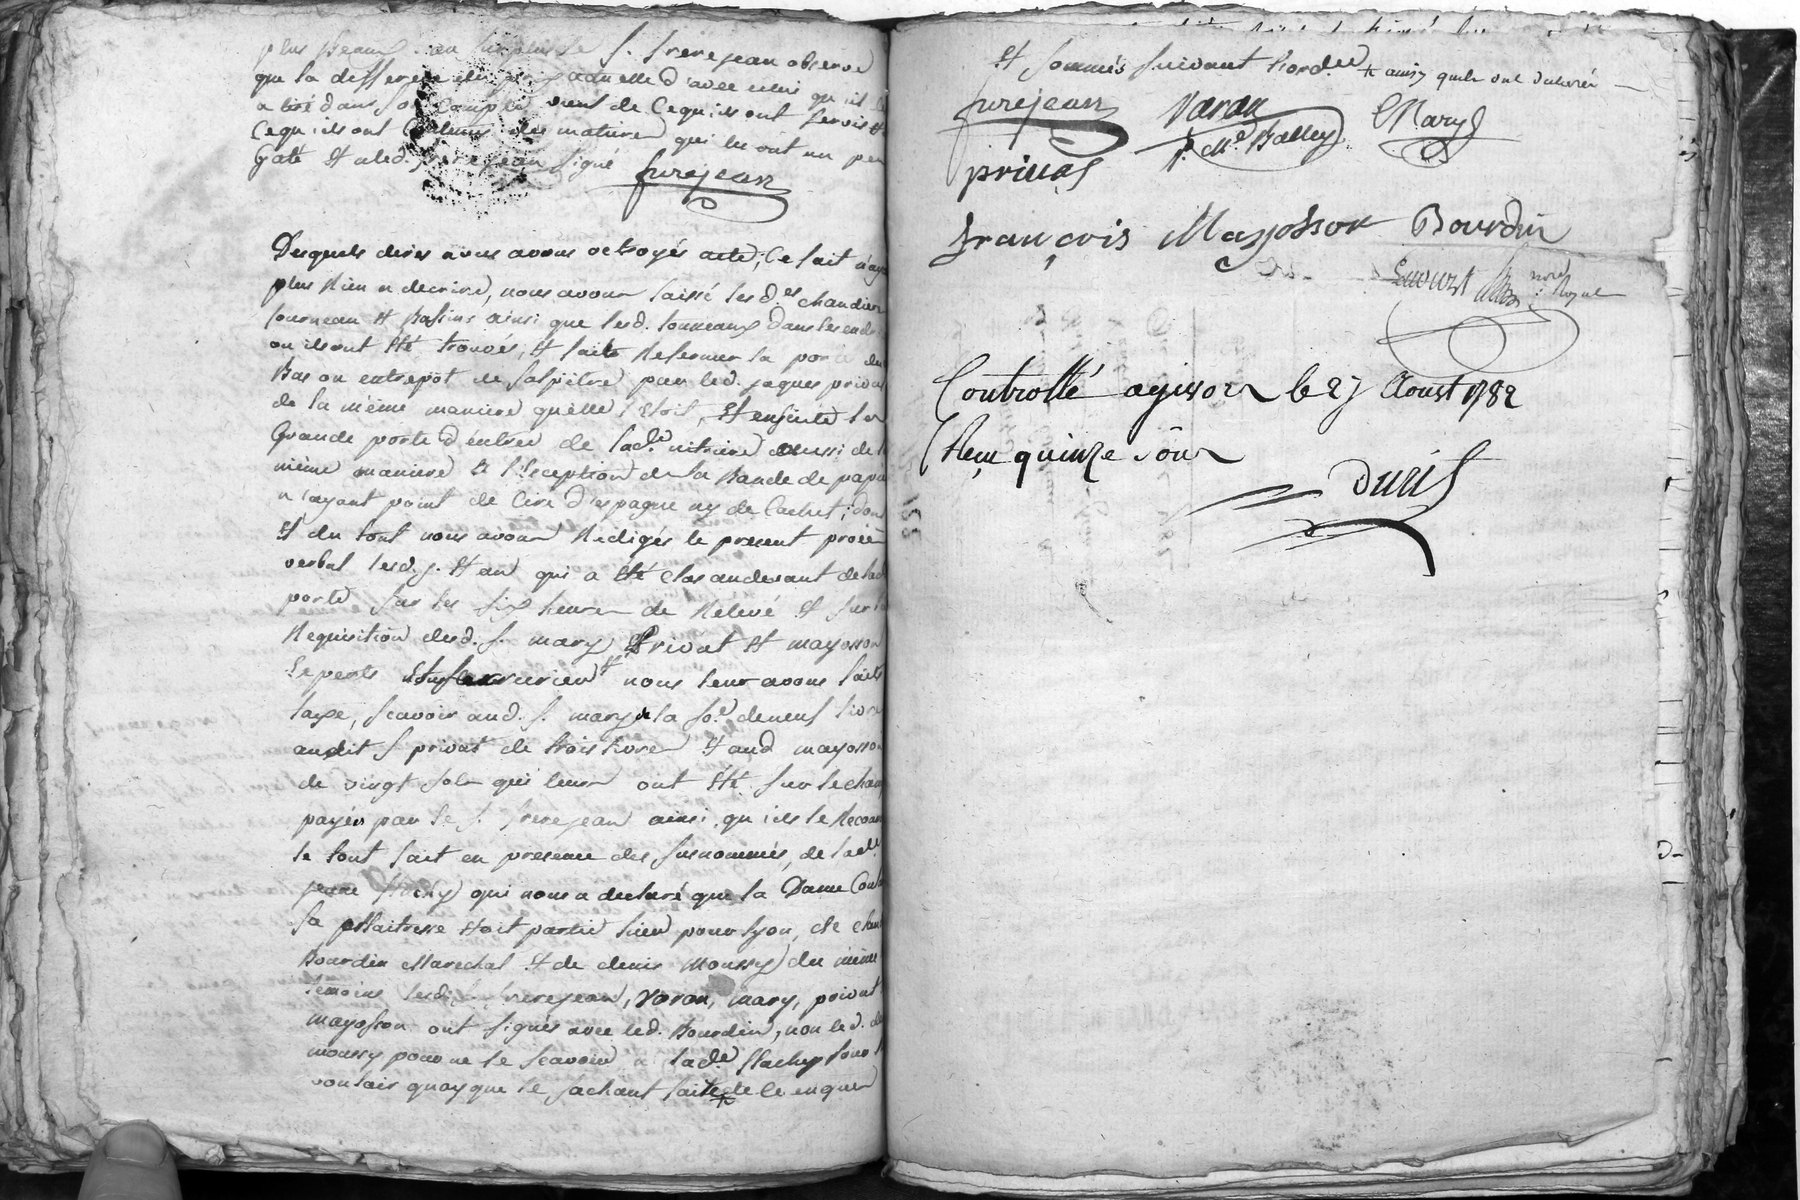 plus Beaux. au surplus le S. frerejean observe
que la difference du actuelle d'avec celui qu'il
a tiré dans son compte vient de Ce qu'ils ont servis et
Ce qu'ils ont Contenus des matieres qui les ont un peu
Gaté Et a led. frerejean signé frerejean
Desquels dires nous avons octroyés acte; Ce fait n'ay
plus Rien a decrire, nous avons laissé lesd.es chaudier
fourneau Et Bassins ainsi que lesd. tonneaux dans les endr
ou ils ont Eté trouvés, Et faits Refermer la porte du
Bas ou entrepot de salpêtre par led. jaques privat
de la même maniere qu'elle Etoit, Et ensuite la
Grande porte d'entrée de lad.e nitriere aussi de la
même maniere a l'Exception de la Bande de papie
n'ayant point de Cire d'espagne ny de Cachet; dont
Et du tout nous avons Rédigés le present procès
verbal lesd. j. Et an qui a Eté clos audevant de lad
porte sur les six heures de Relevé Et sur la
Requisition desd. S. mary Privat Et mayosson
Experts Et serrurier nous leur avons faits
taxe, scavoir aud. S. mary de la so.e de neuf livre
audit S privat de trois livres Et aud mayosson
de vingt sols qui leur ont Eté sur le cham
payés par le S. frerejean ainsi qu'ils le Reconn
le tout fait en presence des susnommés, de lad.e
jeane flachy qui nous a declaré que la Dame Coul
sa Maitresse Etoit partie hier pour lyon, de claud
Bourdin Marechal Et de denis Moussy du même
temoins lesdits S. frerejean, Varan, mary, privat
mayosson ont signés avec led. Bourdin, non led. d
moussy pour ne le scavoir ni lad.e flachy pour
vouloir quoyque le sachant faite de ce enquis
Et sommés suivant l'ord.ce + ainsy quelle ont declaré
frerejean Varan CMary
privas p. M.d Balley
françois Mayosson Bourdin
no.re Royal
Controllé agivors le 27 Aoust 1782
Reçu quinze sous
Duril